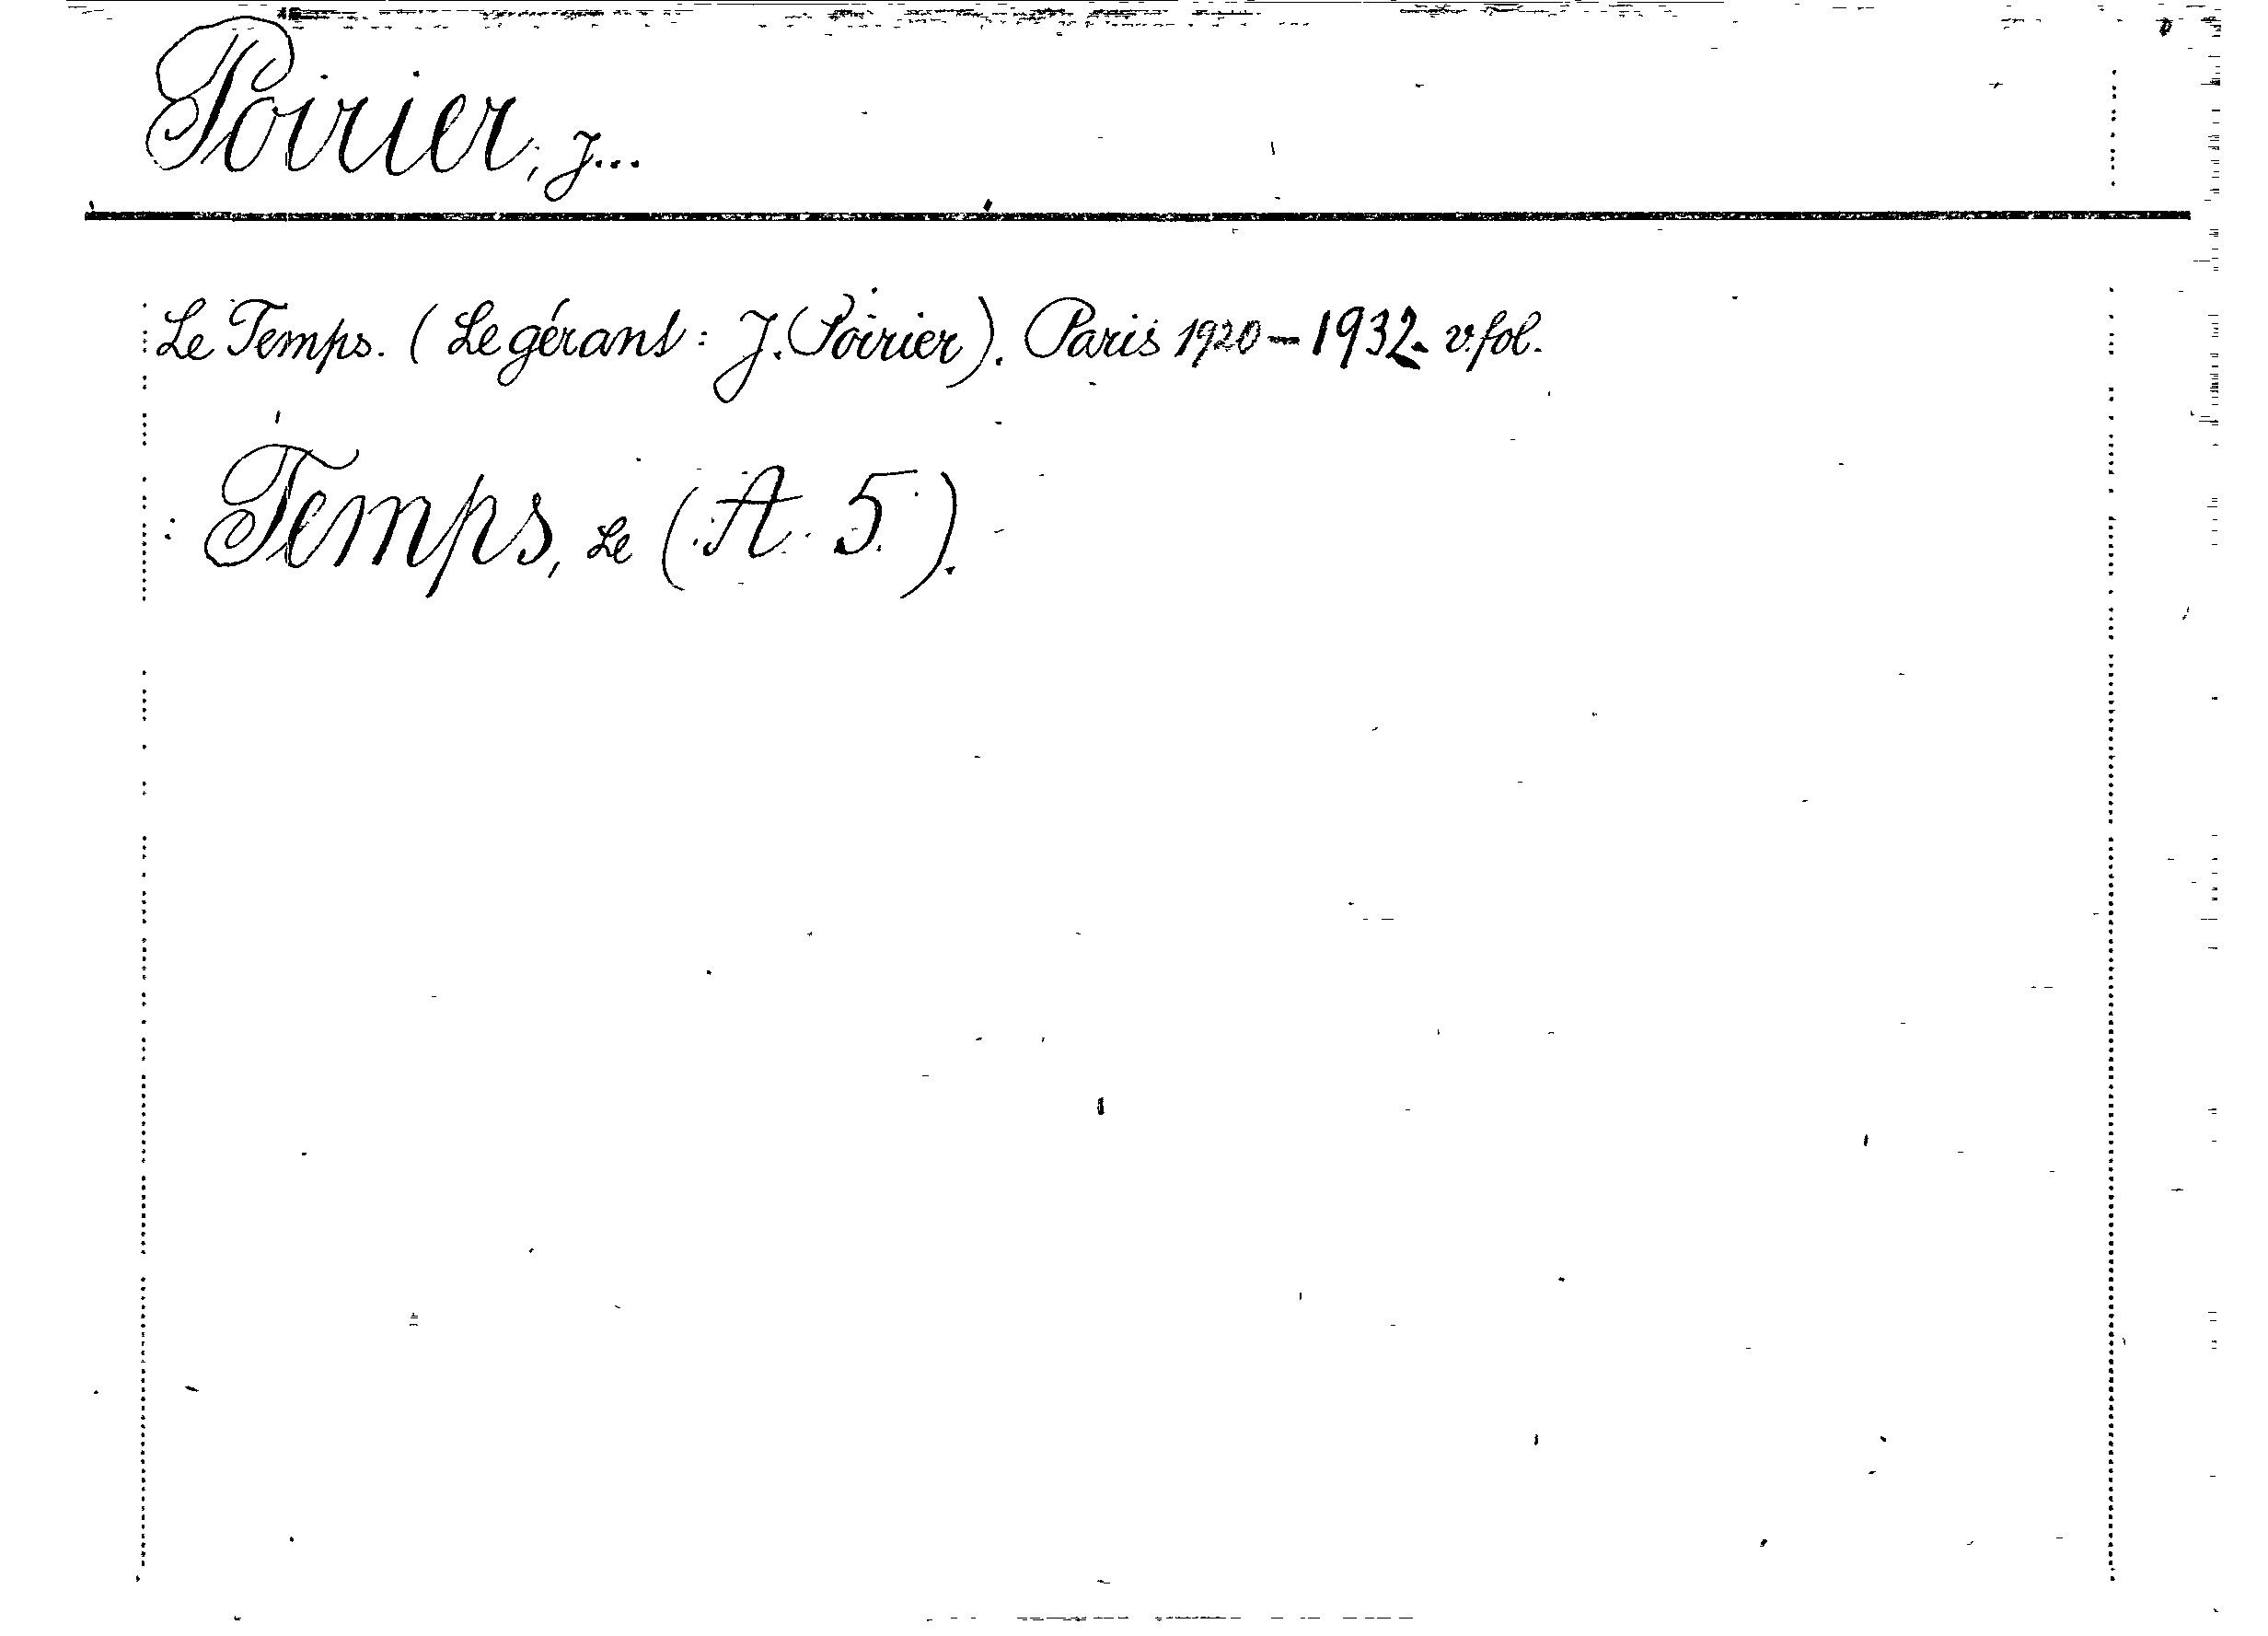 Poirier, J...
Le Temps. (Le gérant: J. Poirier). Paris 1920–1932. v. fol.
Temps, Le (A. 5.).